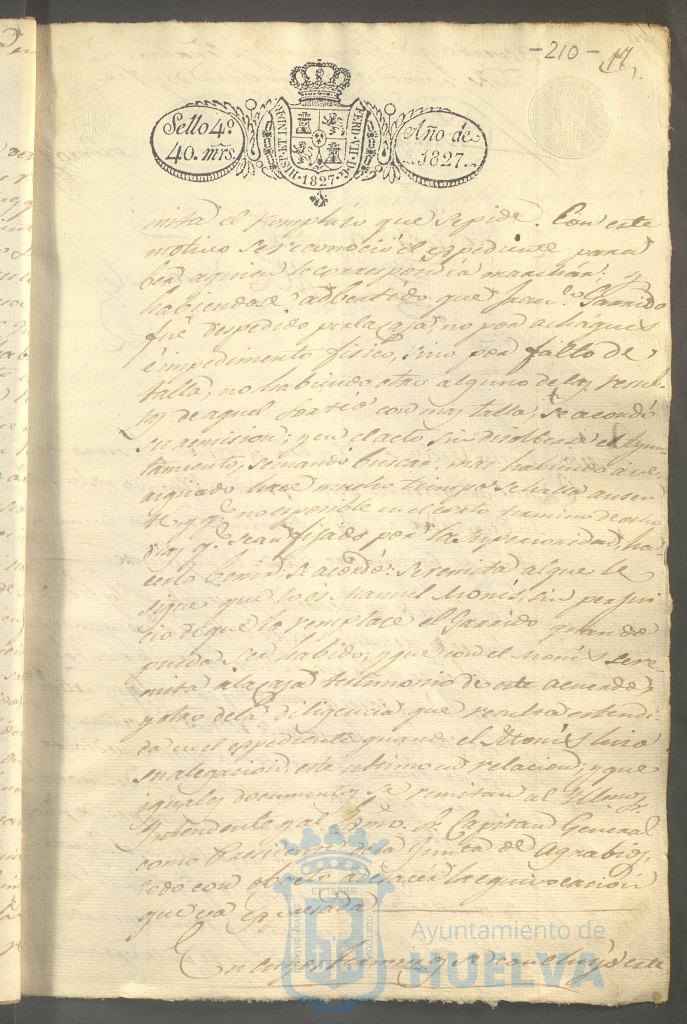 -210- 17
Sello 4º
40. mrs.
HISP. ET IND. R.
FERD. VII. D. G.
1827
Año de
1827.
mita el remplazo que se pide. Con este
motivo se reconoció el espediente para
ber aquien le correspondia marchar; y
habiendose adbertido que Juan Garrido
fué despedido por la Caja, no por achaques
é impedimento fisico, sino por falta de
talla, no habiendo otro alguno de las resul
tas de aquel Sorteo con mas talla, se acordó
su remision; y en el acto sin disolberse el Ayun
tamiento, se mandó buscar, mas habiendo aver
iguado hace mucho tiempo se halla ausen
te, y q.e no es posible en el corto termino de ocho
dias q.e sean fijados por la Superioridad, ha
cerlo benir, se acordó: se remita al que le
sigue que lo es Manuel Monis, sin perjui
cio de que lo remplace el Garrido quando
pueda ser habido; y que con el Monis se re
mita a la Caja testimonio de este acuerdo,
y otro de la diligencia que resulta estendi
da en el espediente quando el Monis hizo
su alegacion, este ultimo en relacion; y que
iguales documentos se remitan al
Yntendente y al Exmo. S. Capitan General
como Presidente de la Junta de Agrabios,
todo con objeto a la equivocacion
que va espresada
En cuyos terminos se concluyó este
Ayuntamiento de
HUELVA